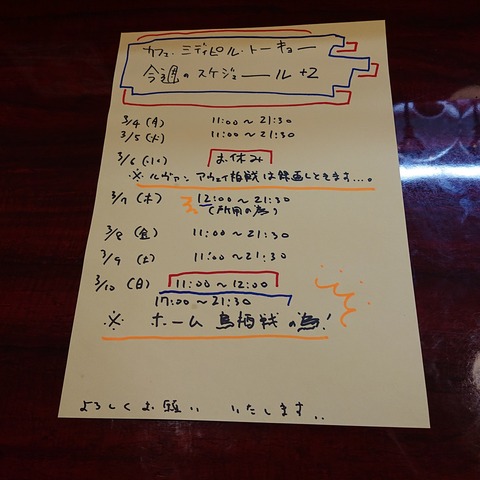 カフェ・ミディピル・トーキョー
今週のスケジュール +2
3/4 (月) 11:00〜21:30
3/5 (火) 11:00〜21:30
3/6 (水) お休み
※ ルヴァン アウェイ柏戦は録画しときます...。
3/7 (木) 12:00〜21:30
(所用の為)
3/8 (金) 11:00〜21:30
3/9 (土) 11:00〜21:30
3/10 (日) 11:00〜12:00
17:00〜21:30
※ ホーム 鳥栖戦の為!
よろしくお願い いたします..